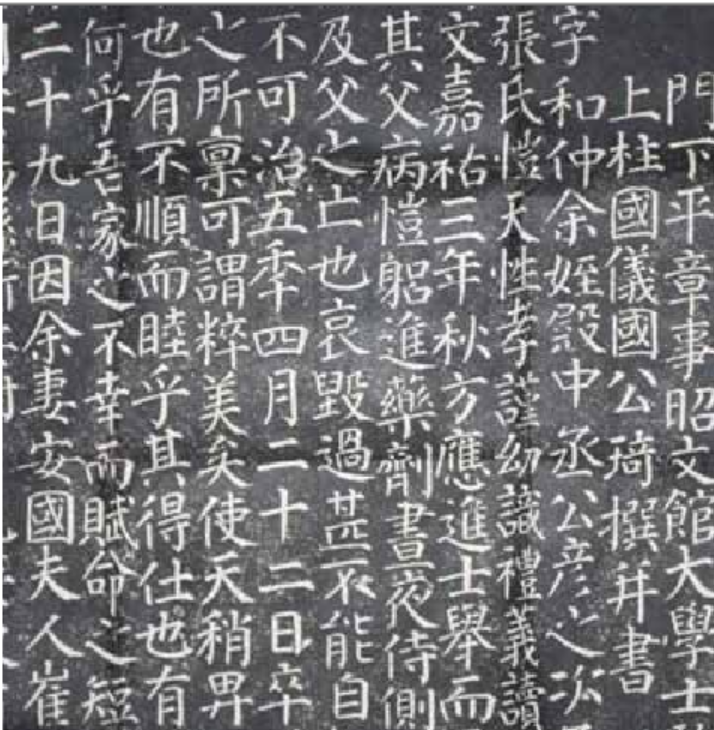 門下平章事昭文館大學士
上柱國儀國公琦撰并書
字和仲余姪殿中丞公彥之次
張氏愷天性孝謹幼識禮義讀
文嘉祐三年秋方應進士舉而
其父病愷躬進藥劑晝夜侍側
及父之亡也哀毀過甚不能自
不可治五季四月二十二日卒
之所稟可謂粹美矣使天稍畀
也有不順而睦乎其得仕也有
何乎吾家之不幸而賦命之短
二十九日因余妻安國夫人崔